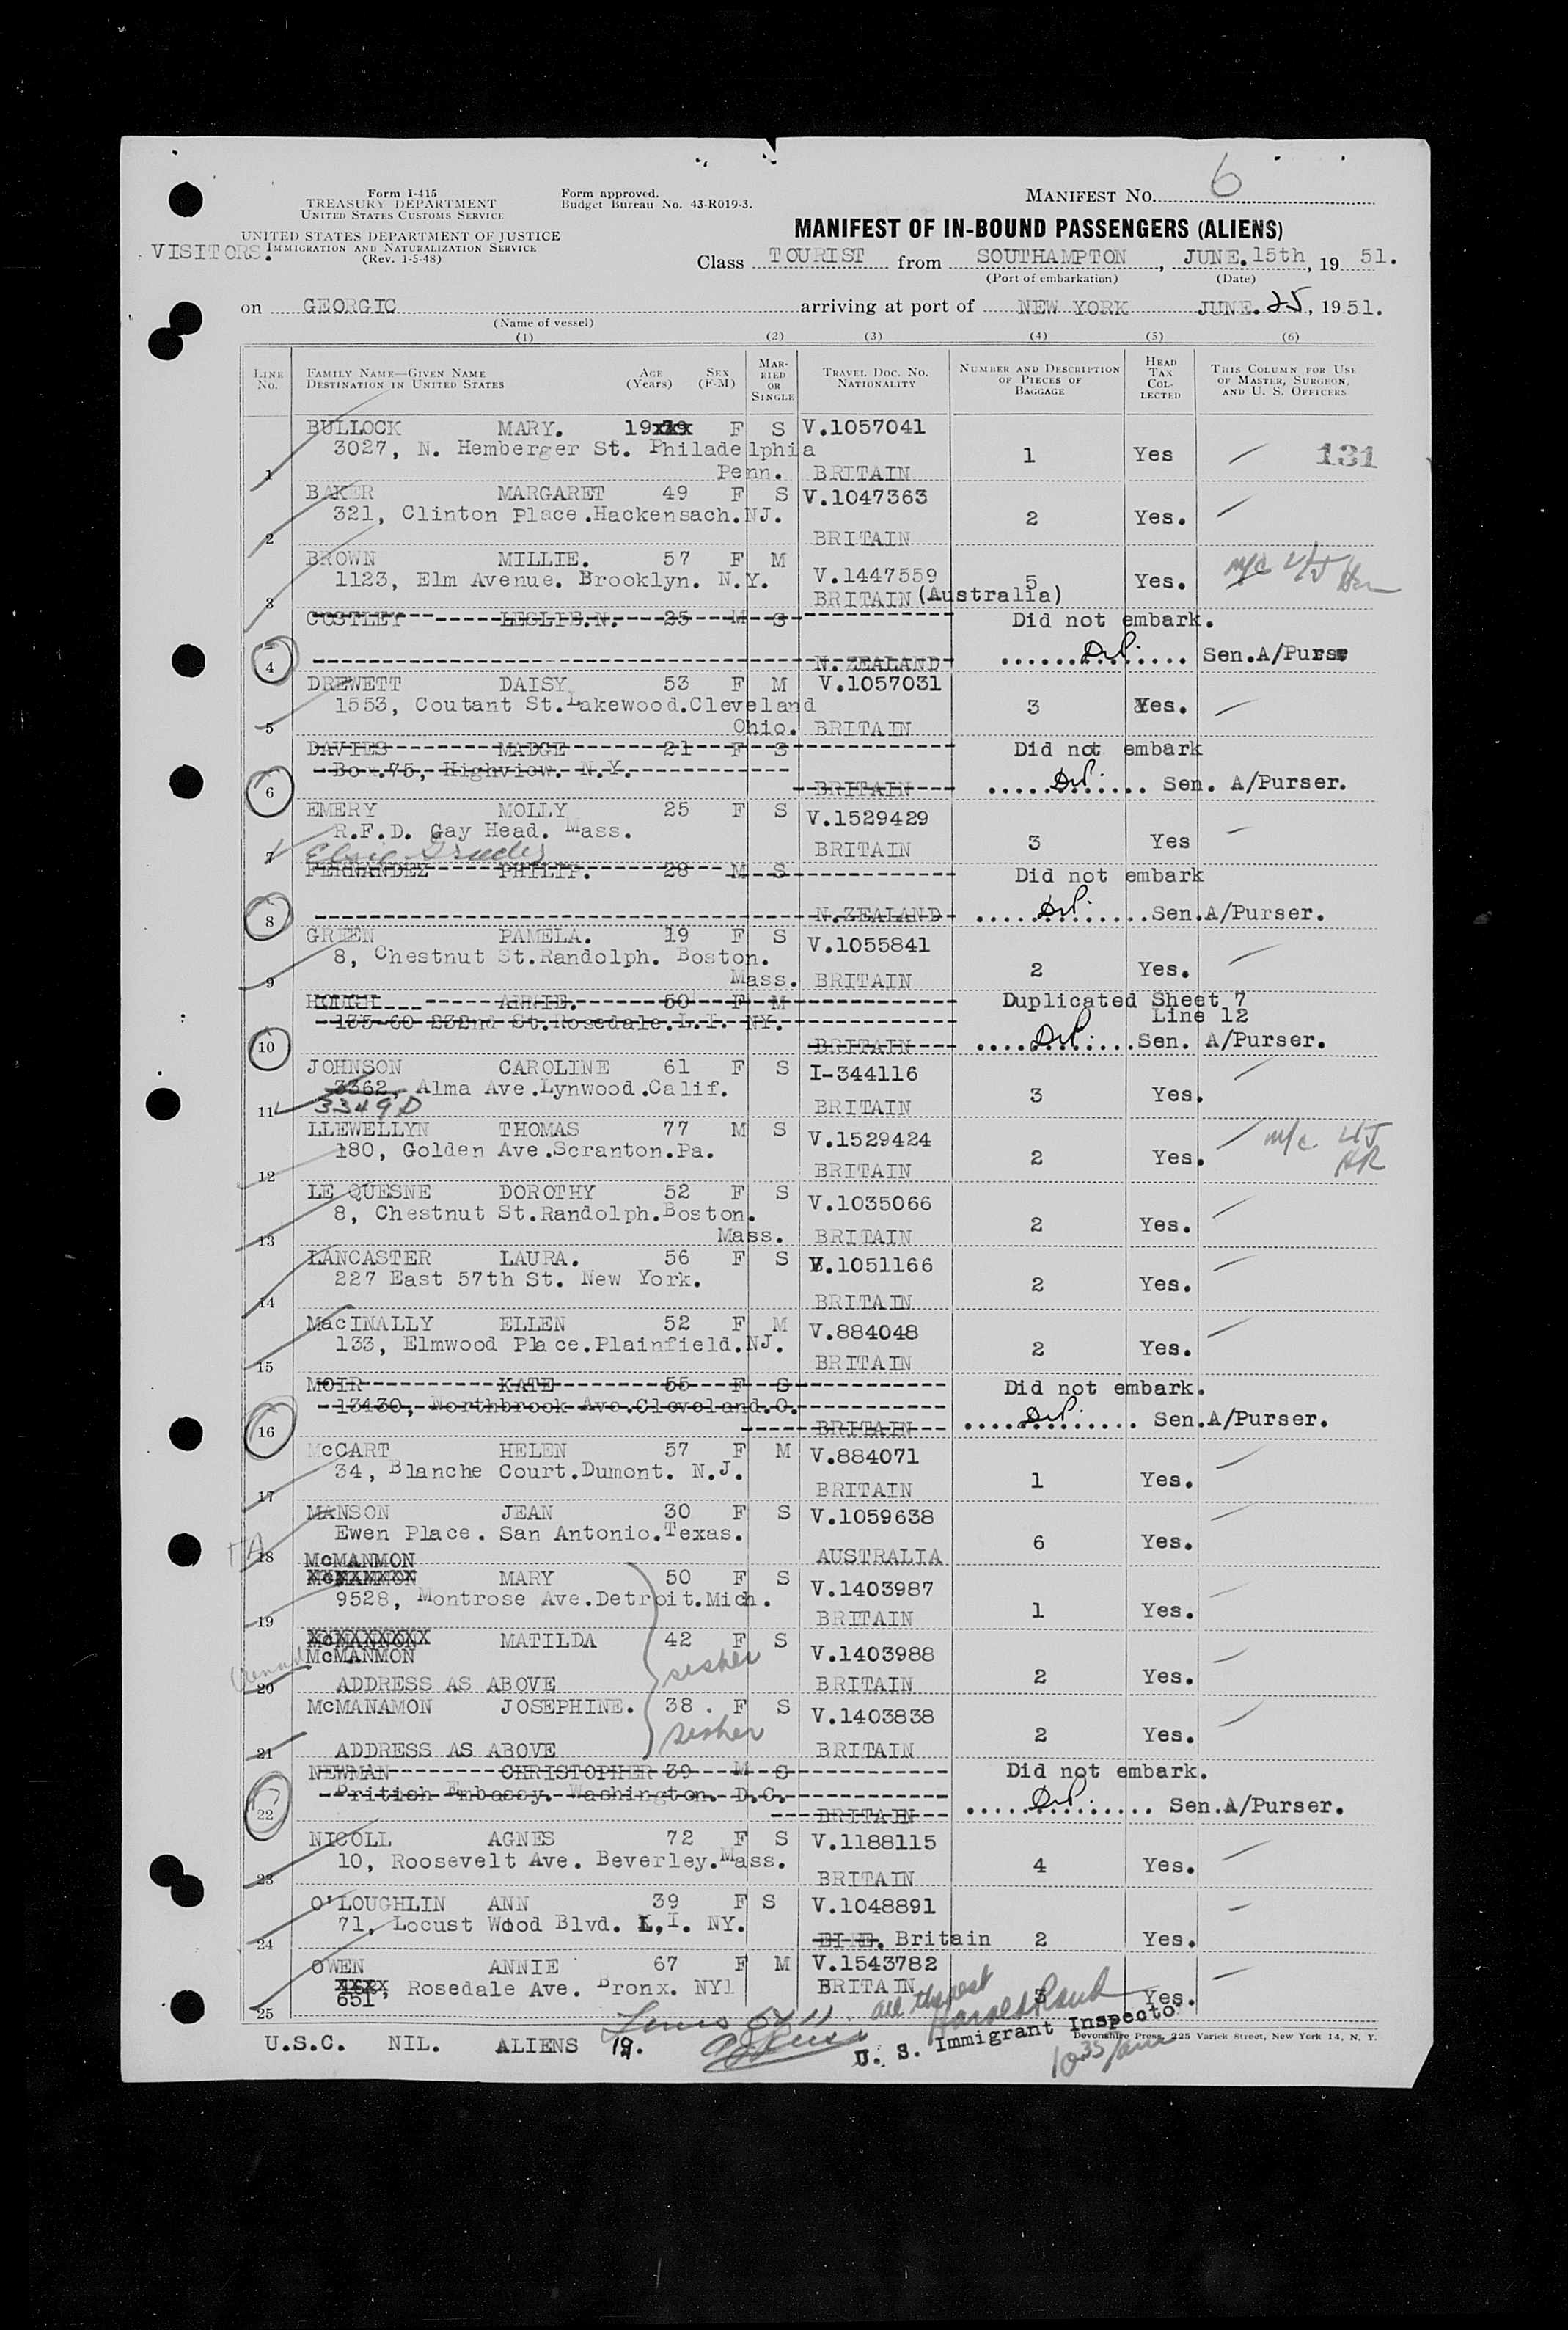 Form I-415
TREASURY DEPARTMENT
UNITED STATES CUSTOMS SERVICE
Form approved.
Budget Bureau No. 43-R019-3.
MANIFEST No. 6
UNITED STATES DEPARTMENT OF JUSTICE
VISITORS. IMMIGRATION AND NATURALIZATION SERVICE
(Rev. 1-5-48)
MANIFEST OF IN-BOUND PASSENGERS (ALIENS)
Class TOURIST from SOUTHAMPTON, JUNE.15th, 19 51.
(Port of embarkation) (Date)
on GEORGIC arriving at port of NEW YORK JUNE. 25, 19 51.
(Name of vessel)
(1) (2) (3) (4) (5) (6)
LINE No. FAMILY NAME—GIVEN NAME DESTINATION IN UNITED STATES AGE (Years) SEX (F-M) MARRIED OR SINGLE TRAVEL DOC. NO. NATIONALITY NUMBER AND DESCRIPTION OF PIECES OF BAGGAGE HEAD TAX COLLECTED THIS COLUMN FOR USE OF MASTER, SURGEON, AND U. S. OFFICERS
BULLOCK MARY. 19 F S V.1057041
3027, N. Hemberger St. Philadelphia
1 Penn. BRITAIN 1 Yes 131
BAKER MARGARET 49 F S V.1047363
321, Clinton Place.Hackensach.NJ. 2 Yes.
2 BRITAIN
BROWN MILLIE. 57 F M
1123, Elm Avenue. Brooklyn. N.Y. V.1447559 5 Yes. m/c
3 BRITAIN (Australia)
COSTLEY LESLIE.N. 25 M S Did not embark.
4 N.ZEALAND Sen.A/Purser
DREWETT DAISY 53 F M V.1057031
1553, Coutant St.Lakewood.Cleveland 3 Yes.
5 Ohio. BRITAIN
DAVIES MADGE 21 F S Did not embark
Box.75, Highview. N.Y.
6 BRITAIN Sen. A/Purser.
EMERY MOLLY 25 F S V.1529429
R.F.D. Gay Head. Mass.
7 Elsie BRITAIN 3 Yes
FERNANDEZ PHILIP. 28 M S Did not embark
8 N.ZEALAND Sen.A/Purser.
GREEN PAMELA. 19 F S V.1055841
8, Chestnut St.Randolph. Boston.
9 Mass. BRITAIN 2 Yes.
HOUGH ANNIE. 50 F M Duplicated Sheet 7
135-60 232nd St.Rosedale.L.I. NY. Line 12
10 BRITAIN Sen. A/Purser.
JOHNSON CAROLINE 61 F S I-344116
3362, Alma Ave.Lynwood.Calif. 3 Yes.
11 3349 D BRITAIN
LLEWELLYN THOMAS 77 M S V.1529424 m/c.
180, Golden Ave.Scranton.Pa. 2 Yes.
12 BRITAIN
LE QUESNE DOROTHY 52 F S V.1035066
8, Chestnut St.Randolph.Boston.
13 Mass. BRITAIN 2 Yes.
LANCASTER LAURA. 56 F S V.1051166
227 East 57th St. New York. 2 Yes.
14 BRITAIN
MacINALLY ELLEN 52 F M V.884048
133, Elmwood Place.Plainfield.NJ. 2 Yes.
15 BRITAIN
MOIR KATE 55 F S Did not embark.
13430, Northbrook Ave.Cleveland.O.
16 BRITAIN Sen.A/Purser.
McCART HELEN 57 F M V.884071
34, Blanche Court.Dumont. N.J. 1 Yes.
17 BRITAIN
MANSON JEAN 30 F S V.1059638
Ewen Place. San Antonio.Texas. 6 Yes.
18 AUSTRALIA
McMANMON
MARY 50 F S V.1403987
9528, Montrose Ave.Detroit.Mich.
19 BRITAIN 1 Yes.
MATILDA 42 F S
McMANMON sisher V.1403988
20 ADDRESS AS ABOVE BRITAIN 2 Yes.
McMANAMON JOSEPHINE. 38. F S V.1403838
sisher
21 ADDRESS AS ABOVE BRITAIN 2 Yes.
NEWMAN CHRISTOPHER 39 M S Did not embark.
British Embassy. Washington. D.C.
22 BRITAIN Sen.A/Purser.
NICOLL AGNES 72 F S V.1188115
10, Roosevelt Ave. Beverley.Mass. 4 Yes.
23 BRITAIN
O'LOUGHLIN ANN 39 F S V.1048891
71, Locust Wood Blvd. L.I. NY.
24 Britain 2 Yes.
OWEN ANNIE 67 F M V.1543782
Rosedale Ave. Bronx. NY1 BRITAIN 3 Yes.
25 651
U.S.C. NIL. ALIENS 19.
U. S. Immigrant Inspector
Devonshire Press, 225 Varick Street, New York 14, N. Y.
10 35 am